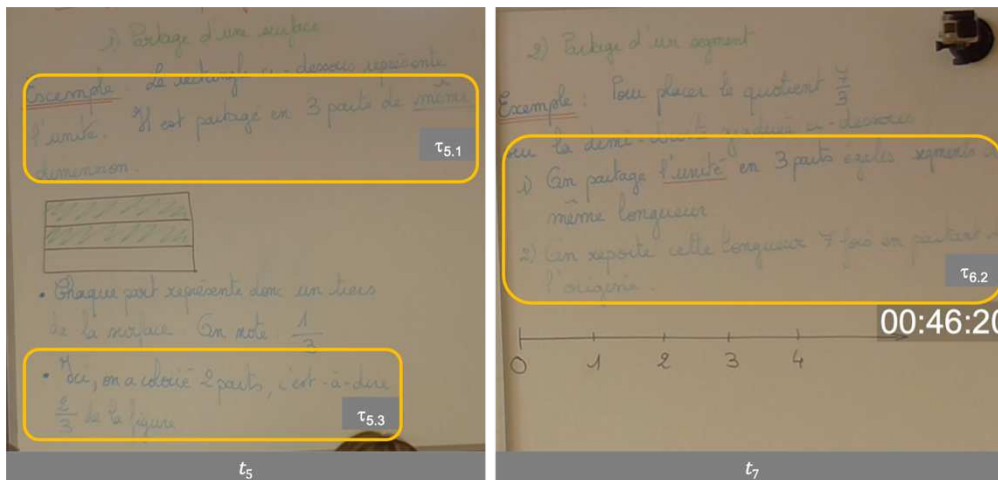 1) Partage d'une surface
Exemple : Le rectangle ci-dessous représente
l'unité. Il est partagé en 3 parts de même
dimension.
τ5.1
• Chaque part représente donc un tiers
de la surface. On note 1/3
• Ici, on a colorié 2 parts, c'est-à-dire
2/3 de la figure
τ5.3
t5
2) Partage d'un segment
Exemple : Pour placer le quotient 7/3
sur la demi-droite graduée ci-dessous
1) On partage l'unité en 3 parts égales segments
même longueur
2) On reporte cette longueur 7 fois en partant
l'origine.
τ6.2
00:46:20
0 1 2 3 4
t7